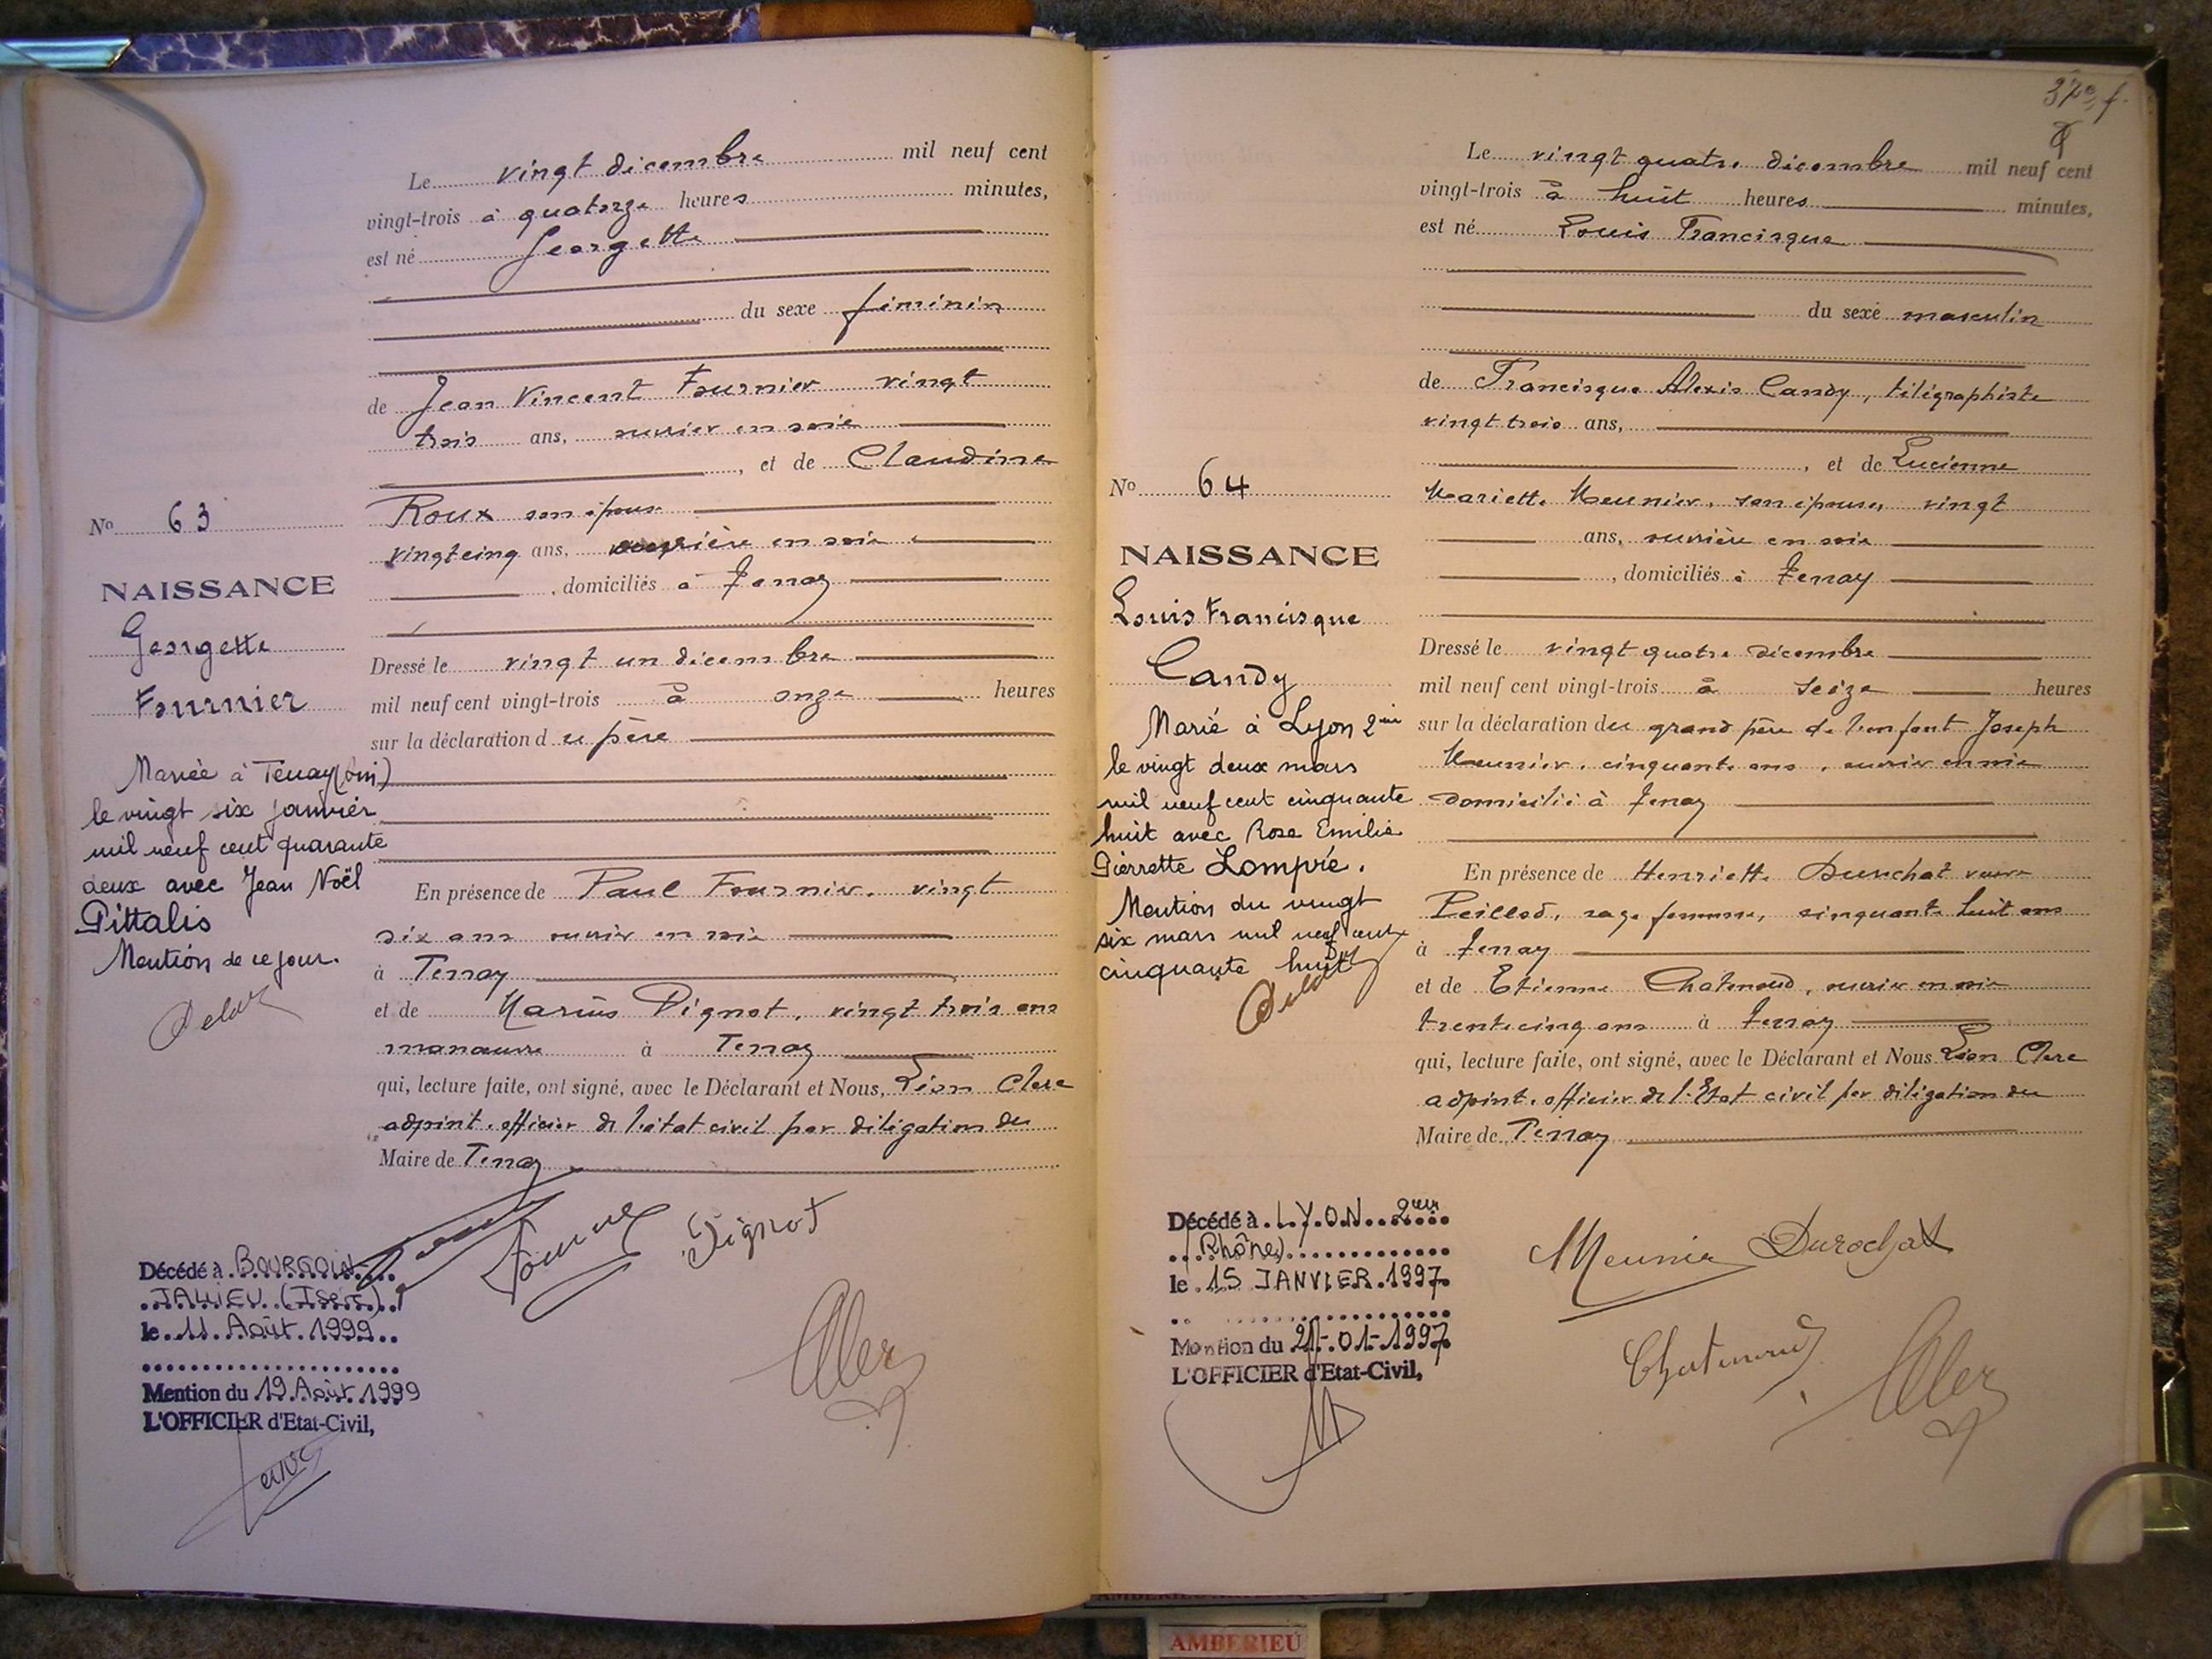 Le vingt décembre mil neuf cent
vingt-trois à quatorze heures minutes,
est né Georgette
du sexe féminin
de Jean Vincent Fournier vingt
trois ans, ouvrier en soie
, et de Claudine
Roux son épouse
vingt cinq ans, ouvrière en soie
, domiciliés à Tenay
Dressé le vingt un décembre
mil neuf cent vingt-trois à onze heures
sur la déclaration du père
En présence de Paul Fournier, vingt
six ans ouvrier en soie
à Tenay
et de Marius Pignot, vingt trois ans
manœuvre à Tenay
qui, lecture faite, ont signé, avec le Déclarant et Nous, Léon Clerc
adjoint, officier de l'état civil par délégation du
Maire de Tenay
No 63
NAISSANCE
Georgette
Fournier
Mariée à Tenay (Ain)
le vingt six janvier
mil neuf cent quarante
deux avec Jean Noël
Pittalis
Mention de ce jour.
Pignot
Décédé à BOURGOIN
JALLIEU (Isère)
le 11 Août 1999
Mention du 19 Août 1999
L'OFFICIER d'Etat-Civil,
37e f.
Le vingt quatre décembre mil neuf cent
vingt-trois à huit heures minutes,
est né Louis Francisque
du sexe masculin
de Francisque Alexis Candy, télégraphiste
vingt trois ans,
, et de Lucienne
Mariette Meunier, son épouse, vingt
ans, ouvrière en soie
, domiciliés à Tenay
Dressé le vingt quatre décembre
mil neuf cent vingt-trois à seize heures
sur la déclaration du grand père de l'enfant Joseph
Meunier, cinquante ans, ouvrier en soie
domicilié à Tenay
En présence de Henriette Durochat veuve
Peillod, sage femme, cinquante huit ans
à Tenay
et de Etienne Chatenoud, ouvrier en soie
trente cinq ans à Tenay
qui, lecture faite, ont signé, avec le Déclarant et Nous Léon Clerc
adjoint, officier de l'Etat civil par délégation du
Maire de Tenay
No 64
NAISSANCE
Louis Francisque
Candy
Marié à Lyon 2ème
le vingt deux mars
mil neuf cent cinquante
huit avec Rose Emilie
Pierrette Lompré.
Mention du vingt
six mars mil neuf cent
cinquante huit
Meunier Durochat
Chatenoud
Décédé à LYON 2ème
(Rhône)
le 15 JANVIER 1997
Mention du 21-01-1997
L'OFFICIER d'Etat-Civil,
AMBERIEU